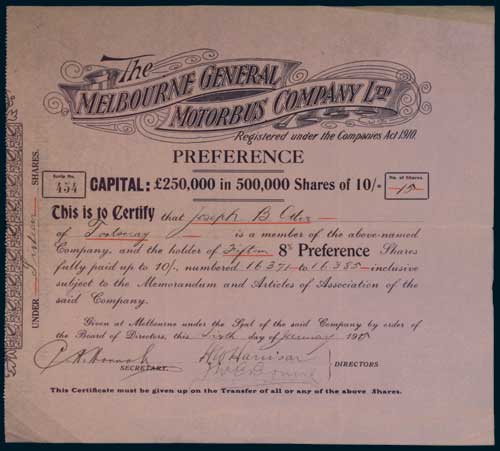 The
MELBOURNE GENERAL
MOTORBUS COMPANY LTD
Registered under the Companies Act 1910.
PREFERENCE
Scrip No.
454
CAPITAL: £250,000 in 500,000 Shares of 10/-
No. of Shares
15
This is to Certify that Joseph B
of Footscray is a member of the above-named
Company, and the holder of Fifteen 8% Preference Shares
fully paid up to 10/-, numbered 16371 to 16385 inclusive
subject to the Memorandum and Articles of Association of the
said Company.
Given at Melbourne under the Seal of the said Company by order of
the Board of Directors, this sixth day of January 191
SECRETARY.
DIRECTORS
This Certificate must be given up on the Transfer of all or any of the above Shares.
UNDER Fifteen SHARES.